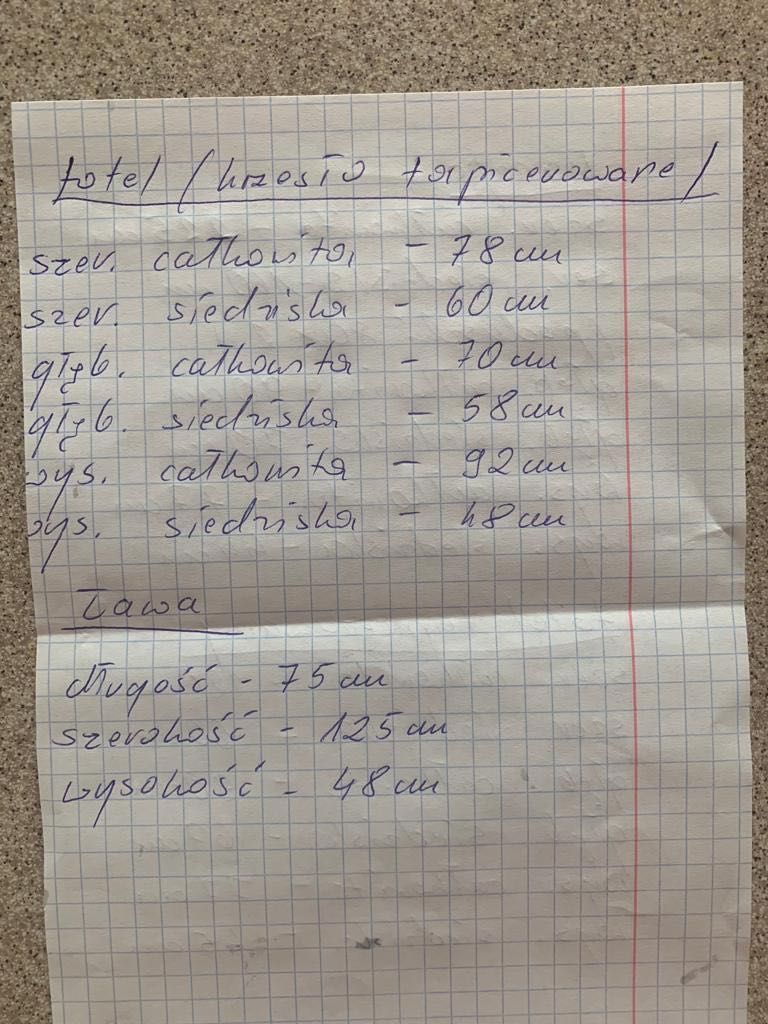 fotel / krzesło tapicerowane /
szer. całkowita - 78 cm
szer. siedziska - 60 cm
głęb. całkowita - 70 cm
głęb. siedziska - 58 cm
wys. całkowita - 92 cm
wys. siedziska - 48 cm
Ława
długość - 75 cm
szerokość - 125 cm
wysokość - 48 cm